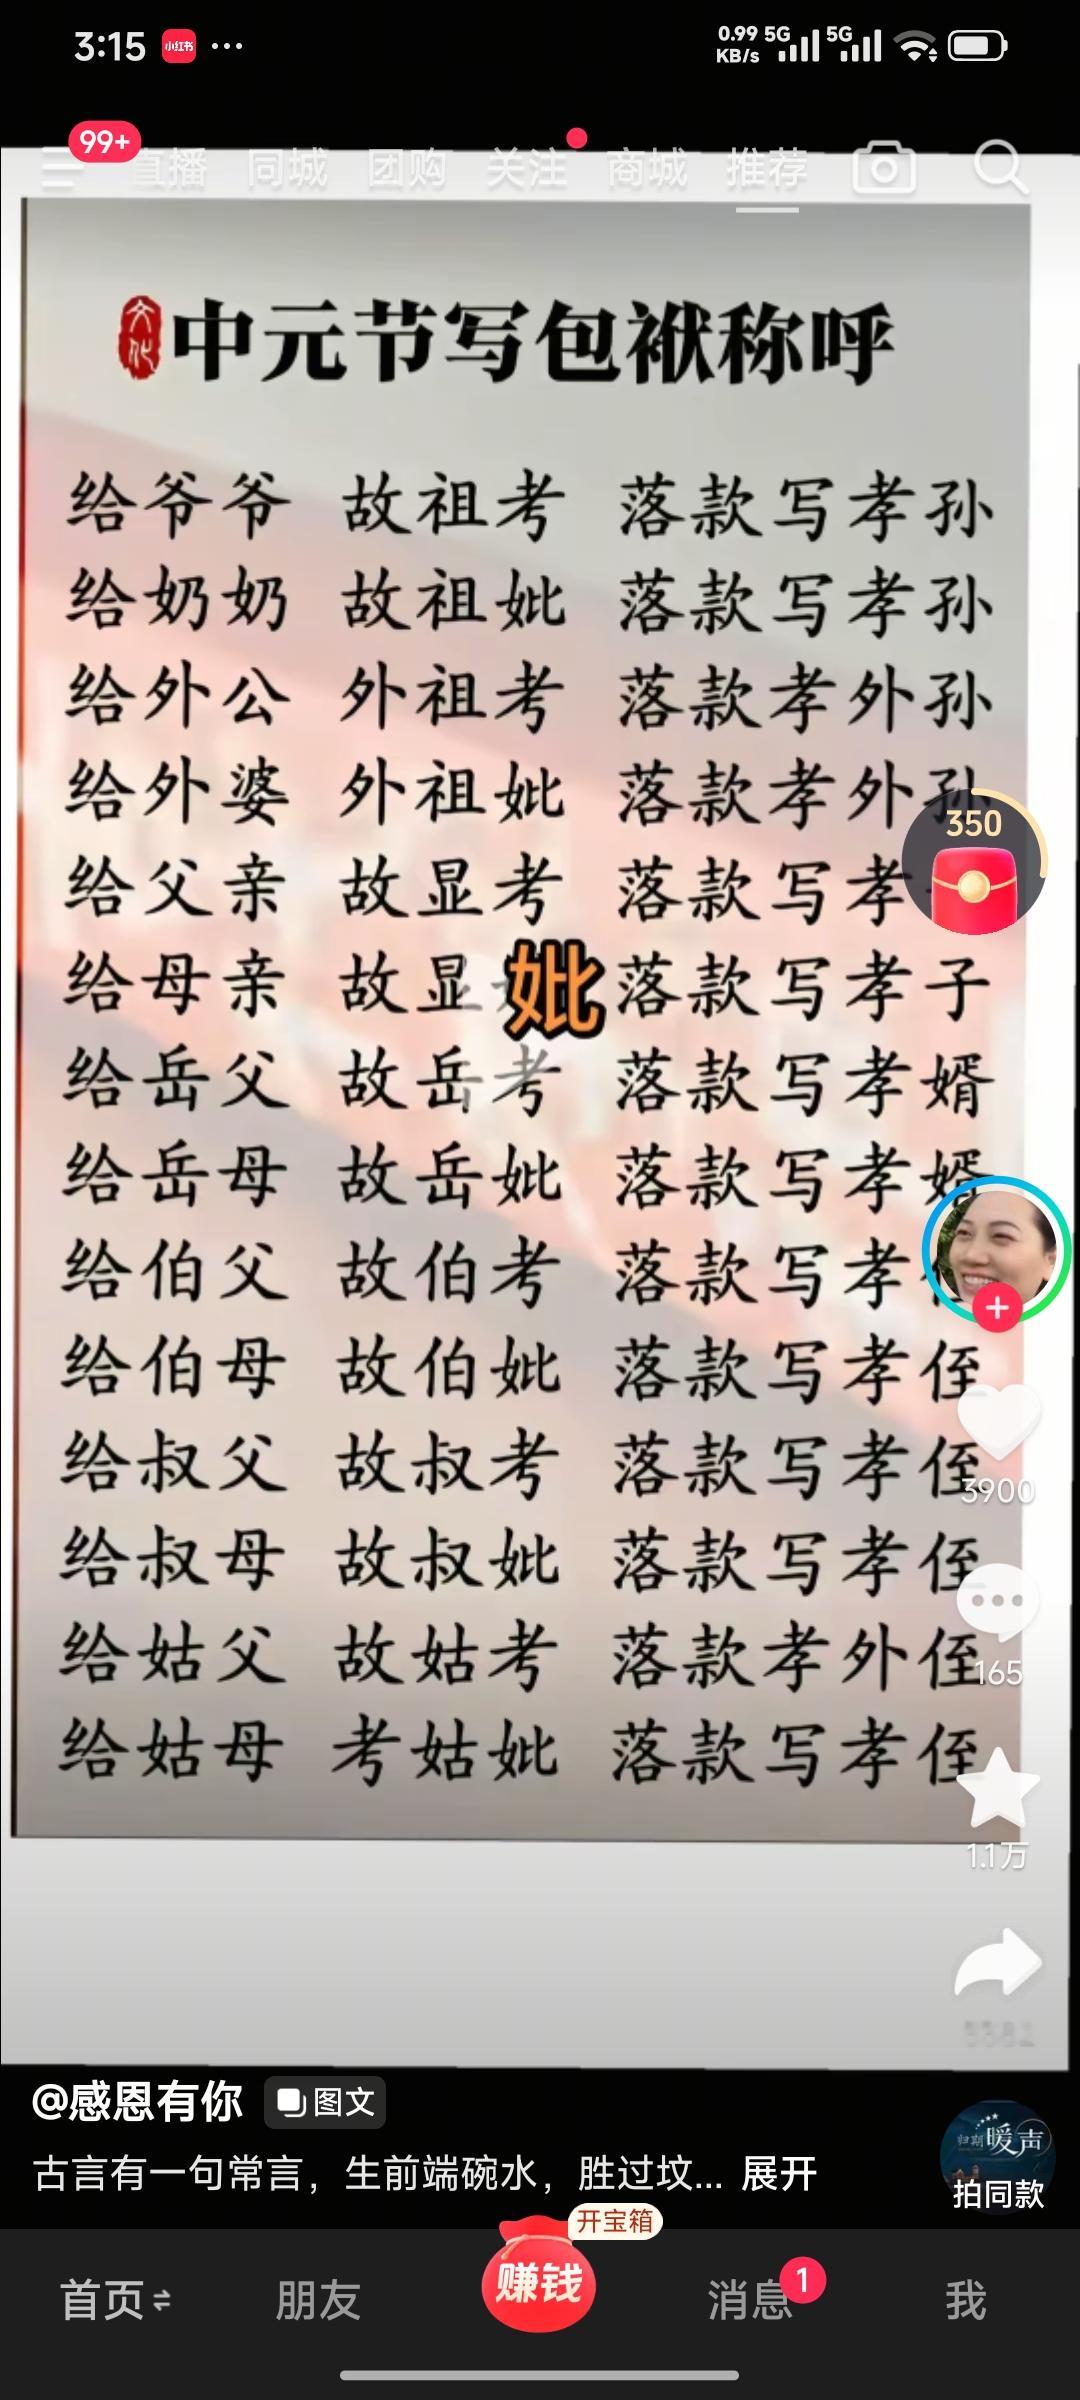 3:15 小红书 ...
0.99 KB/s 5G 5G
99+
直播 同城 团购 关注 商城 推荐
文化 中元节写包袱称呼
给爷爷 故祖考 落款写孝孙
给奶奶 故祖妣 落款写孝孙
给外公 外祖考 落款孝外孙
给外婆 外祖妣 落款孝外孙
350
给父亲 故显考 落款写孝
给母亲 故显妣 落款写孝子
给岳父 故岳考 落款写孝婿
给岳母 故岳妣 落款写孝婿
给伯父 故伯考 落款写孝
给伯母 故伯妣 落款写孝侄
给叔父 故叔考 落款写孝侄
3900
给叔母 故叔妣 落款写孝侄
给姑父 故姑考 落款孝外侄
165
给姑母 考姑妣 落款写孝侄
1.1万
@感恩有你 图文
古言有一句常言，生前端碗水，胜过坟... 展开
归期 暖声
拍同款
开宝箱
首页 朋友 赚钱 消息 1 我